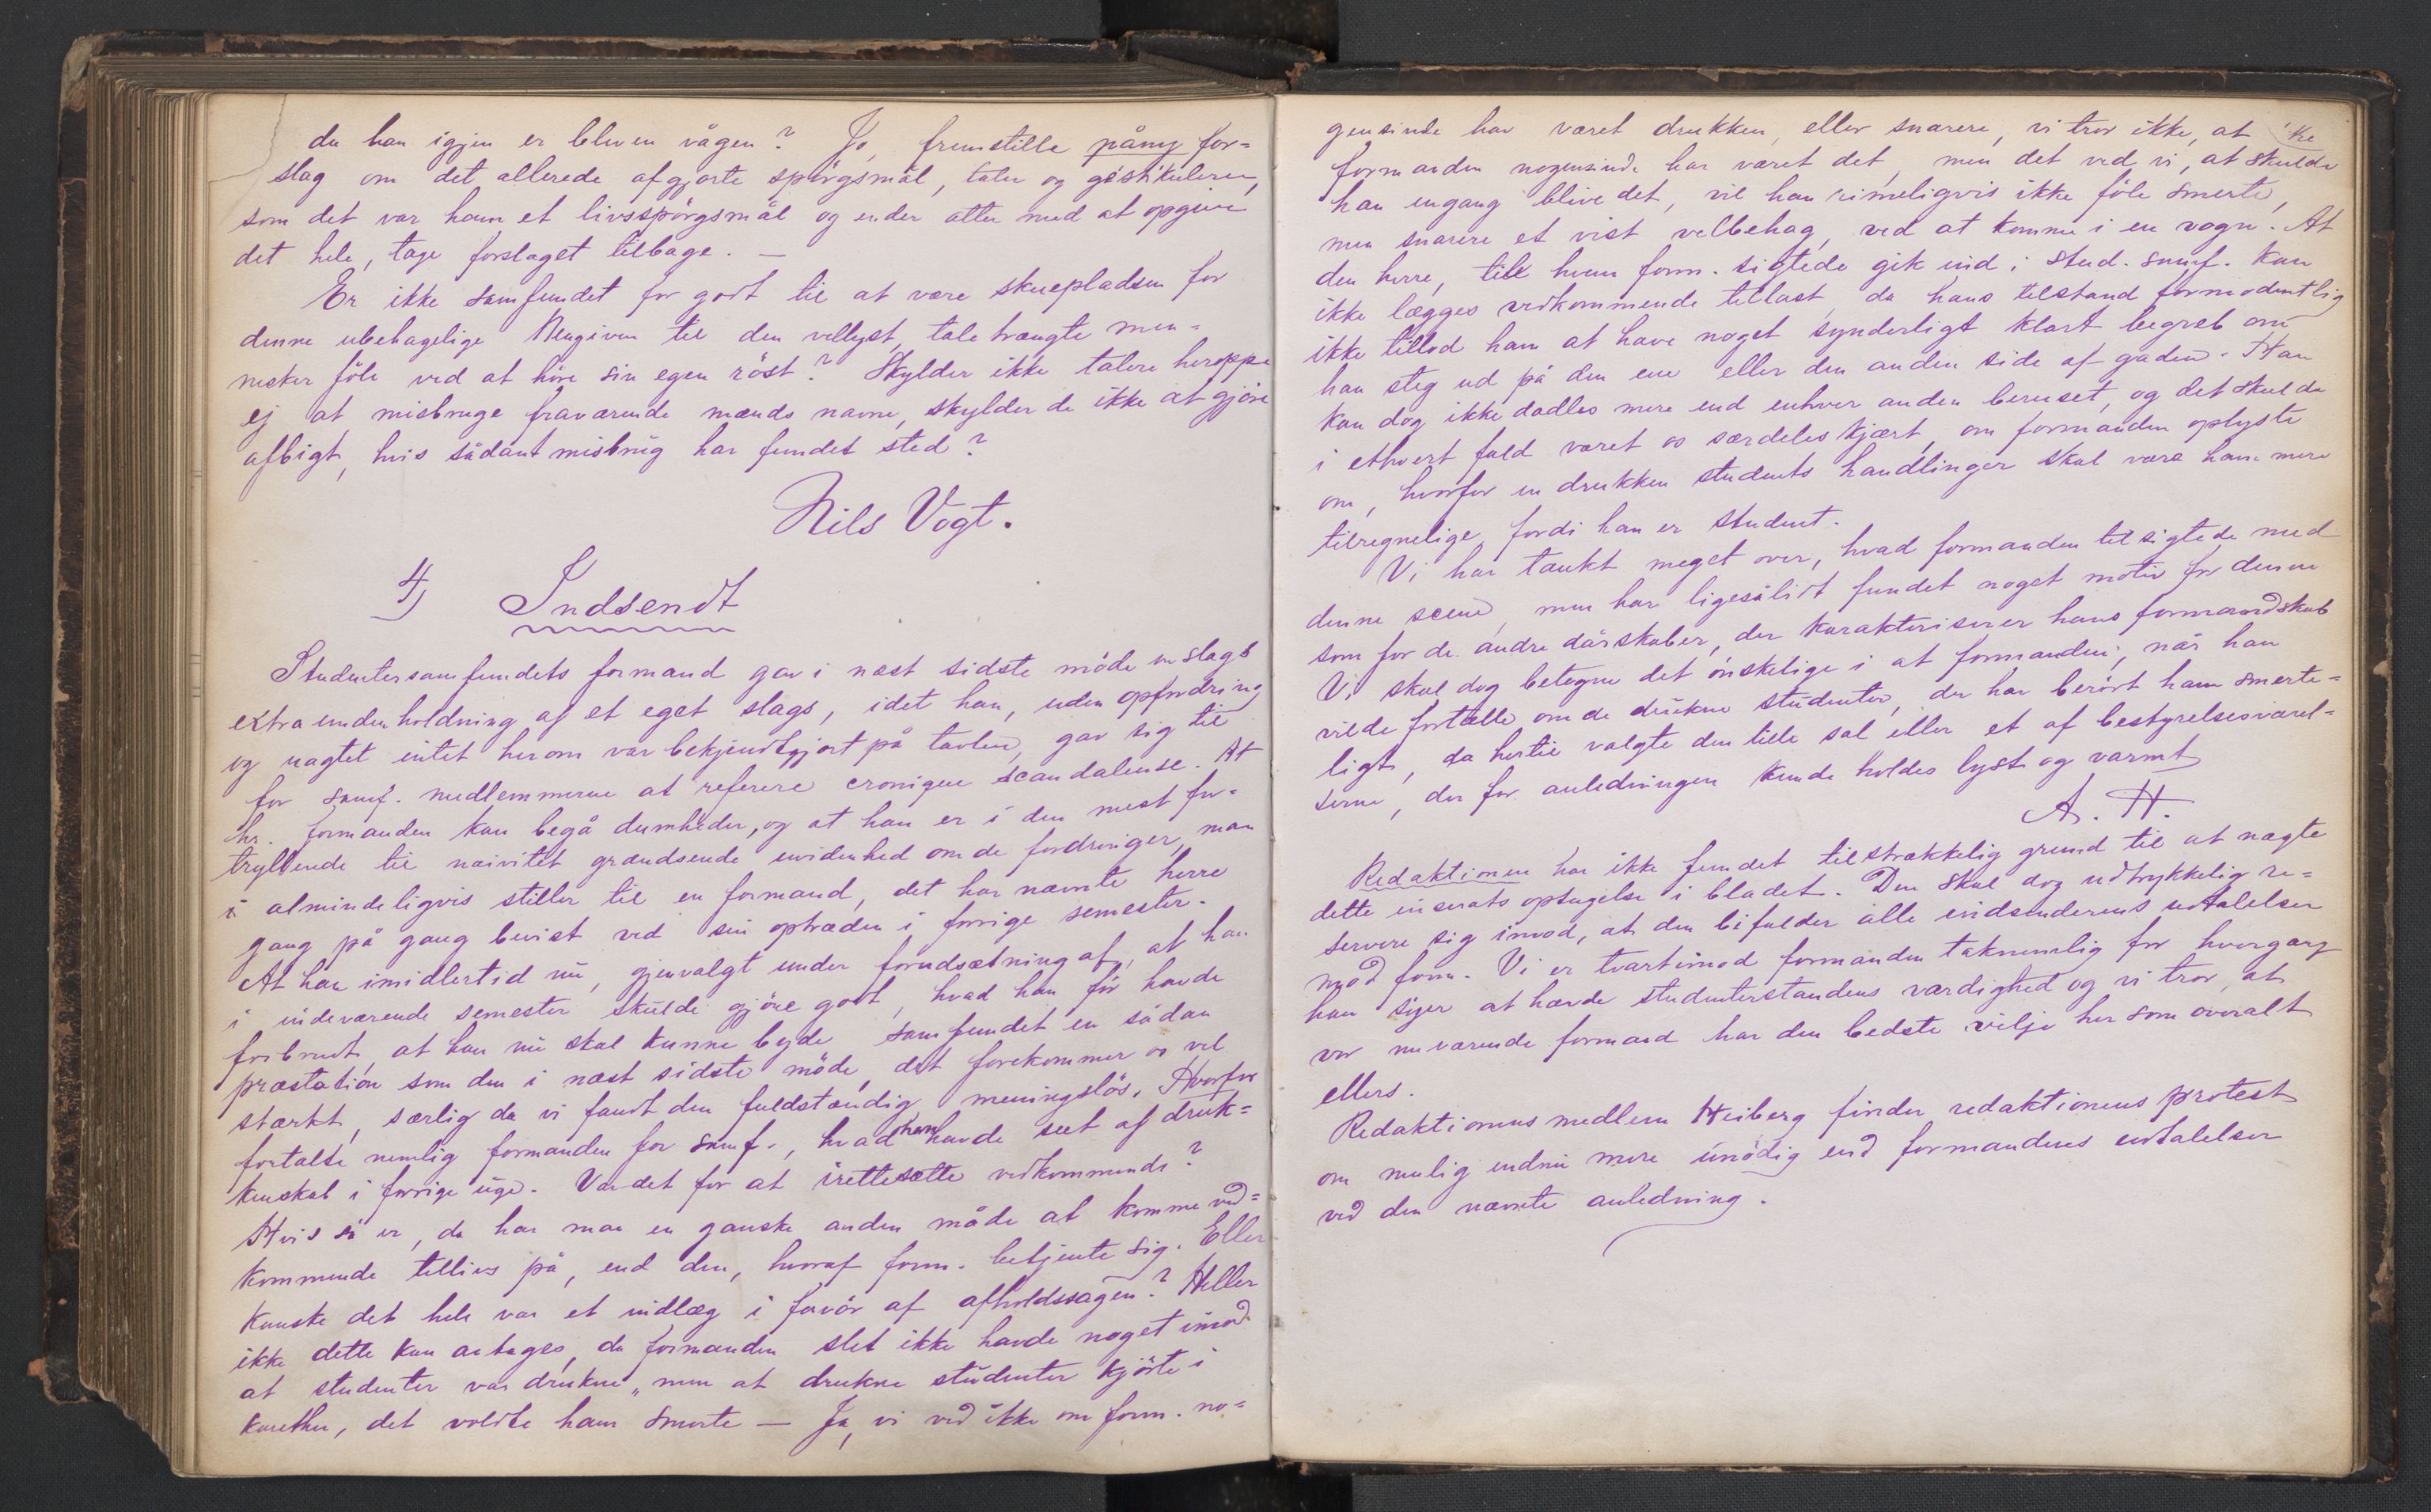 da han igjen er bleven vågen? Jo, fremstille påny for=
slag om det allerede afgjorte spörgsmål, taler og gestikulerer,
som det var ham et livsspörgsmål og ender atter med at opgive
det hele, tage forslaget tilbage. —
Er ikke samfundet for godt til at være skuepladsen for
denne ubehagelige hengiven til den vellyst, taletrængte men=
nesker föle ved at höre sin egen röst? Skylder ikke talere heroppe
ej at misbruge fraværende mænds navne, skylder de ikke at gjöre
afbigt, hvis sådant misbrug har fundet sted?
Nils Vogt.
4) Indsendt
Studentersamfundets formand gav i næst sidste möde en slags
extraunderholdning af et eget slags, idet han, uden opfordring
og uagtet intet herom var bekjendtgjort på tavlen, gav sig til
for samf. medlemmerne at referere cronique scandaleuse. At
hr. formanden kan begå dumheder, og at han er i den mest for=
tryllende til naivitet grændsende uvidenhed om de fordringer, man
i almindeligvis stiller til en formand, det har nævnte herre
gang på gang bevist ved sin optræden i forrige semester.
At han imidlertid nu, gjenvalgt under forudsætning af, at han
i indeværende semester skulde gjöre godt, hvad han för havde
forbrudt, at han nu skal kunne byde samfundet en sådan
præstation som den i næst sidste möde, det forekommer os vel
stærkt, særlig da vi fandt den fuldstændig meningslös. Hvorfor
fortalte nemlig formanden for samf., hvad han havde seet af druk=
kenskab i forrige uge. Var det for at irettesætte vedkommende?
Hvis så er, da har man en ganske anden måde at komme ved=
kommende tillivs på, end den, hvoraf form. betjente sig. Eller
kanske det hele var et indlæg i favör af afholdssagen? Heller
ikke dette kan antages, da formanden slet ikke havde noget imod
at studenter var drukne „men at drukne studenter kjörte i
karether, det voldte ham smerte — Ja, vi ved ikke om form. no=
gensinde har været drukken, eller snarere, vi tror ikke, at
formanden nogensinde har været det, men det ved vi, at skulde
han engang blive det, vil han rimeligvis ikke föle smerte,
men snarere et vist velbehag, ved at komme i en vogn. At
den herre, till hvem form. sigtede gik ind i stud. samf. kan
ikke lægges vedkommende tillast, da hans tilstand formodentlig
ikke tillod ham at have noget synderligt klart begreb om
han steg ud på den ene eller den anden side af gaden. Han
kan dog ikke dadles mere end enhver anden beruset, og det skulde
i ethvert fald været os særdeles kjært, om formanden oplyste
om, hvorfor en drukken students handlinger skal være ham mere
tilregnelige, fordi han er student.
Vi har tænkt meget over, hvad formanden tilsigtede med
denne scene, men har ligesålidt fundet noget motiv for denne
som for de andre dårskaber, der karakteriserer hans formandskab
Vi skal dog betegne det önskelige i at formanden, når han
vilde fortælle om de drukne studenter, der har berört ham smerte=
ligt, da hertil valgte den lille sal eller et af bestyrelsesværel=
serne, der for anledningen kunde holdes lyst og varmt
A. H.
Redaktionen har ikke fundet tilstrækkelig grund til at nægte
dette inserats optagelse i bladet. Den skal dog udtrykkelig re=
servere sig imod, at den bifalder alle indsenderens udtalelser
mod form. Vi er tvartimod formanden taknemlig for hvergang
han siger at hævde studenterstandens værdighed og vi tror, at
vor nuværende formand har den bedste vilje her som overalt
ellers.
Redaktionens medlem Heiberg finder redaktionens protest
om mulig endnu mere unödig end formandens udtalelser
ved den nævnte anledning.